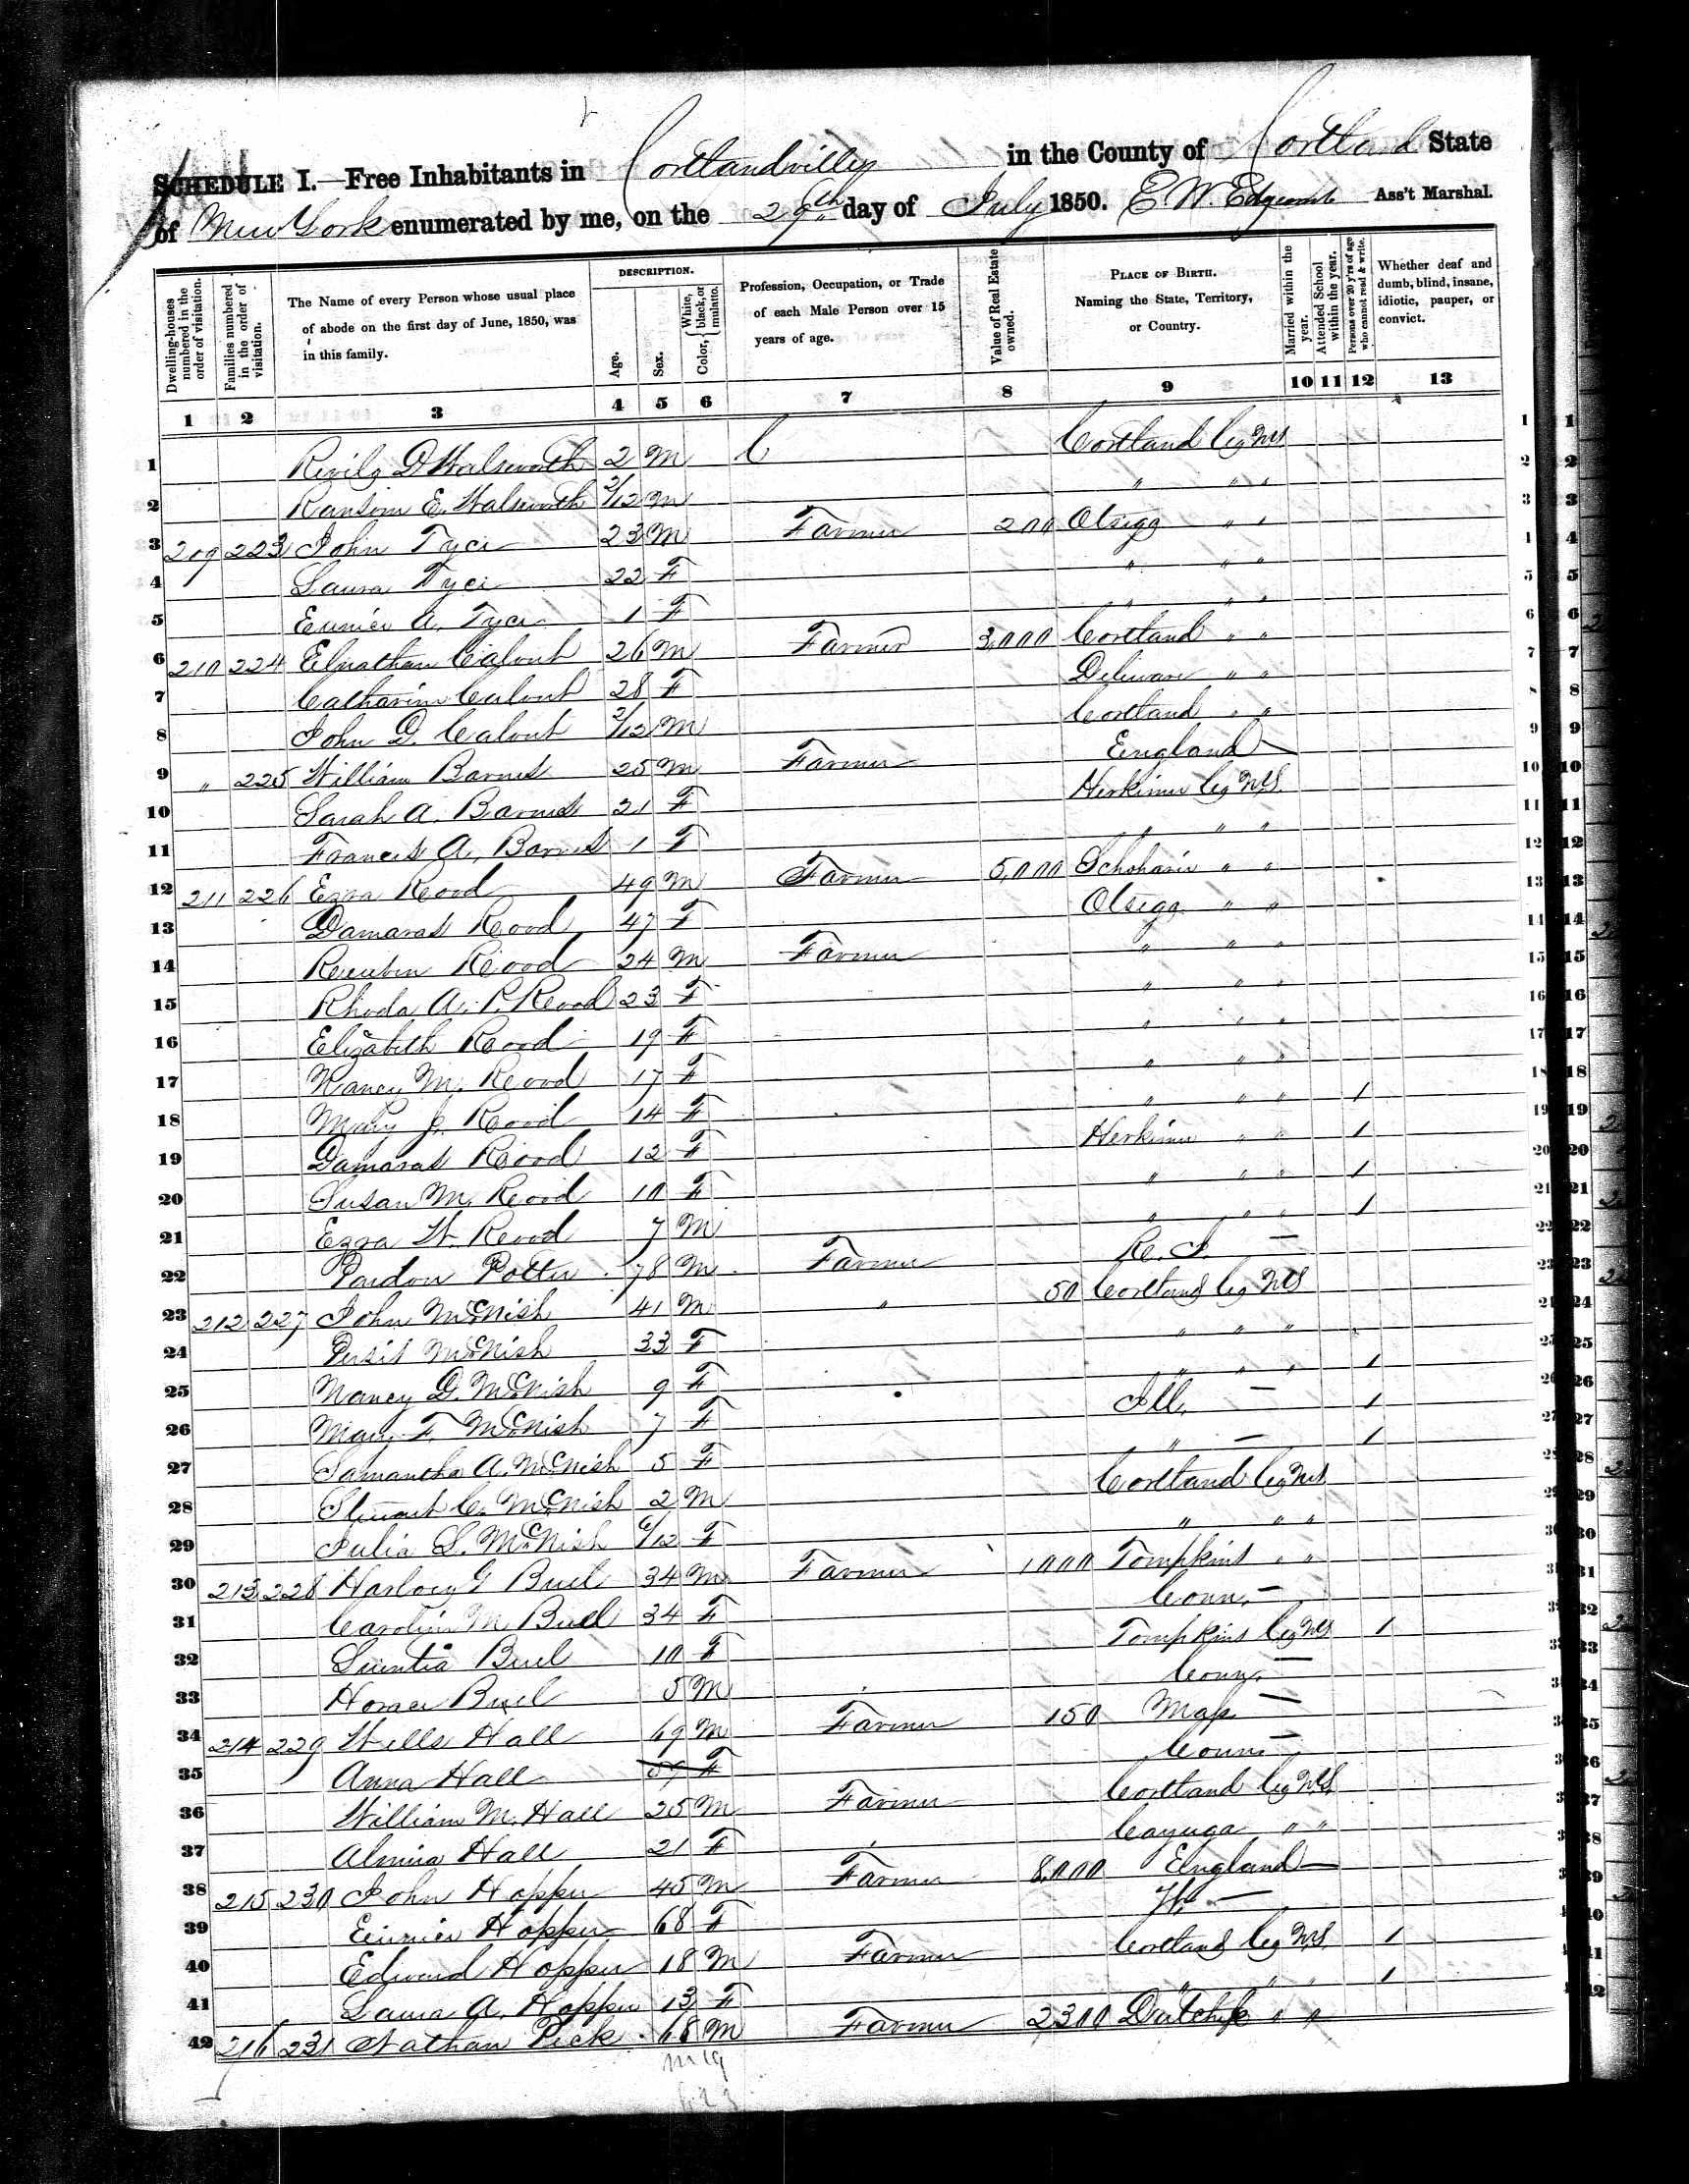 SCHEDULE I.—Free Inhabitants in Cortlandville in the County of Cortland State
of New York enumerated by me, on the 29th day of July 1850. E. W. Edgcomb Ass't Marshal.
Dwelling-houses numbered in the order of visitation.
Families numbered in the order of visitation.
The Name of every Person whose usual place of abode on the first day of June, 1850, was in this family.
DESCRIPTION.
Age.
Sex.
Color, White, black, or mulatto.
Profession, Occupation, or Trade of each Male Person over 15 years of age.
Value of Real Estate owned.
PLACE OF BIRTH. Naming the State, Territory, or Country.
Married within the year.
Attended School within the year.
Persons over 20 y'rs of age who cannot read & write.
Whether deaf and dumb, blind, insane, idiotic, pauper, or convict.
1 2 3 4 5 6 7 8 9 10 11 12 13
1 D Walsworth 2 M Cortland Co NY 1
2 Ransom E. Walsworth 2/12 M " " " 2
3 209 223 John Tyce 23 M Farmer 200 Otsego " " 3
4 Laura Tyce 22 F " " "
5 Eunice A. Tyce 1 F " " " 5
6 210 224 Elnathan Calvert 26 M Farmer 3,000 Cortland " " 6
7 Catharine Calvert 28 F Deleware " " 7
8 John D. Calvert 2/12 M Cortland " " 8
9 " 225 William Barnes 25 M Farmer England 9
10 Sarah A. Barnes 21 F Herkimer Co N.Y. 10
11 Frances A. Barnes 1 F " " " 11
12 211 226 Ezra Rood 49 M Farmer 5,000 Schoharie " " 12
13 Damaras Rood 47 F Otsego " " 13
14 Reuben Rood 24 M Farmer " " " 14
15 Rhoda A. P. Rood 23 F " " " 15
16 Elizabeth Rood 19 F " " " 16
17 Nancy M. Rood 17 F " " " 17
18 Mary J. Rood 14 F " " " 1 18
19 Damaras Rood 12 F Herkimer " " 1 19
20 Susan M. Rood 10 F " " " 1 20
21 Ezra W. Rood 7 M " " " 1 21
22 Pardon Potter 78 M Farmer R. I. — 22
23 212 227 John McNish 41 M " 50 Cortland Co NY 23
24 Persis McNish 33 F " " " 24
25 Nancy D. McNish 9 F " " " 1 25
26 Mary F. McNish 7 F Ill. — 1 26
27 Samantha A. McNish 5 F " — 1 27
28 Stewart C. McNish 2 M Cortland Co NY 28
29 Julia L. McNish 6/12 F " " " 29
30 213 228 Harvey G Buel 34 M Farmer 1000 Tompkins " " 30
31 Caroline M Buel 34 F Conn. — 31
32 Buel 10 F Tompkins Co NY 1 32
33 Horace Buel 5 M Conn. — 33
34 214 229 Wells Hall 69 M Farmer 150 Mass — 34
35 Anna Hall 59 F Conn. —
36 William M. Hall 25 M Farmer Cortland Co N.Y.
37 Almira Hall 21 F Cayuga " "
38 215 230 John Hopper 45 M Farmer 8,000 England —
39 Eunice Hopper 68 F —
40 Edward Hopper 18 M Farmer Cortland Co N.Y. 1
41 Laura A. Hopper 13 F " " " 1
42 216 231 Nathan Peck 68 M Farmer 2,300 Dutchess " "
m 19
f 23